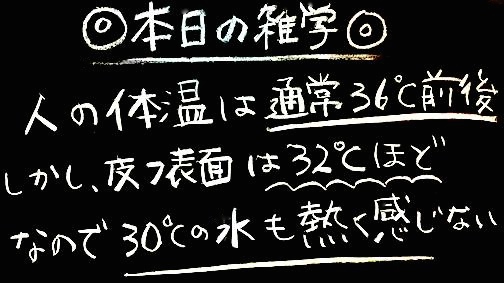 ◎本日の雑学◎
人の体温は通常36℃前後
しかし、皮フ表面は32℃ほど
なので30℃の水も熱く感じない